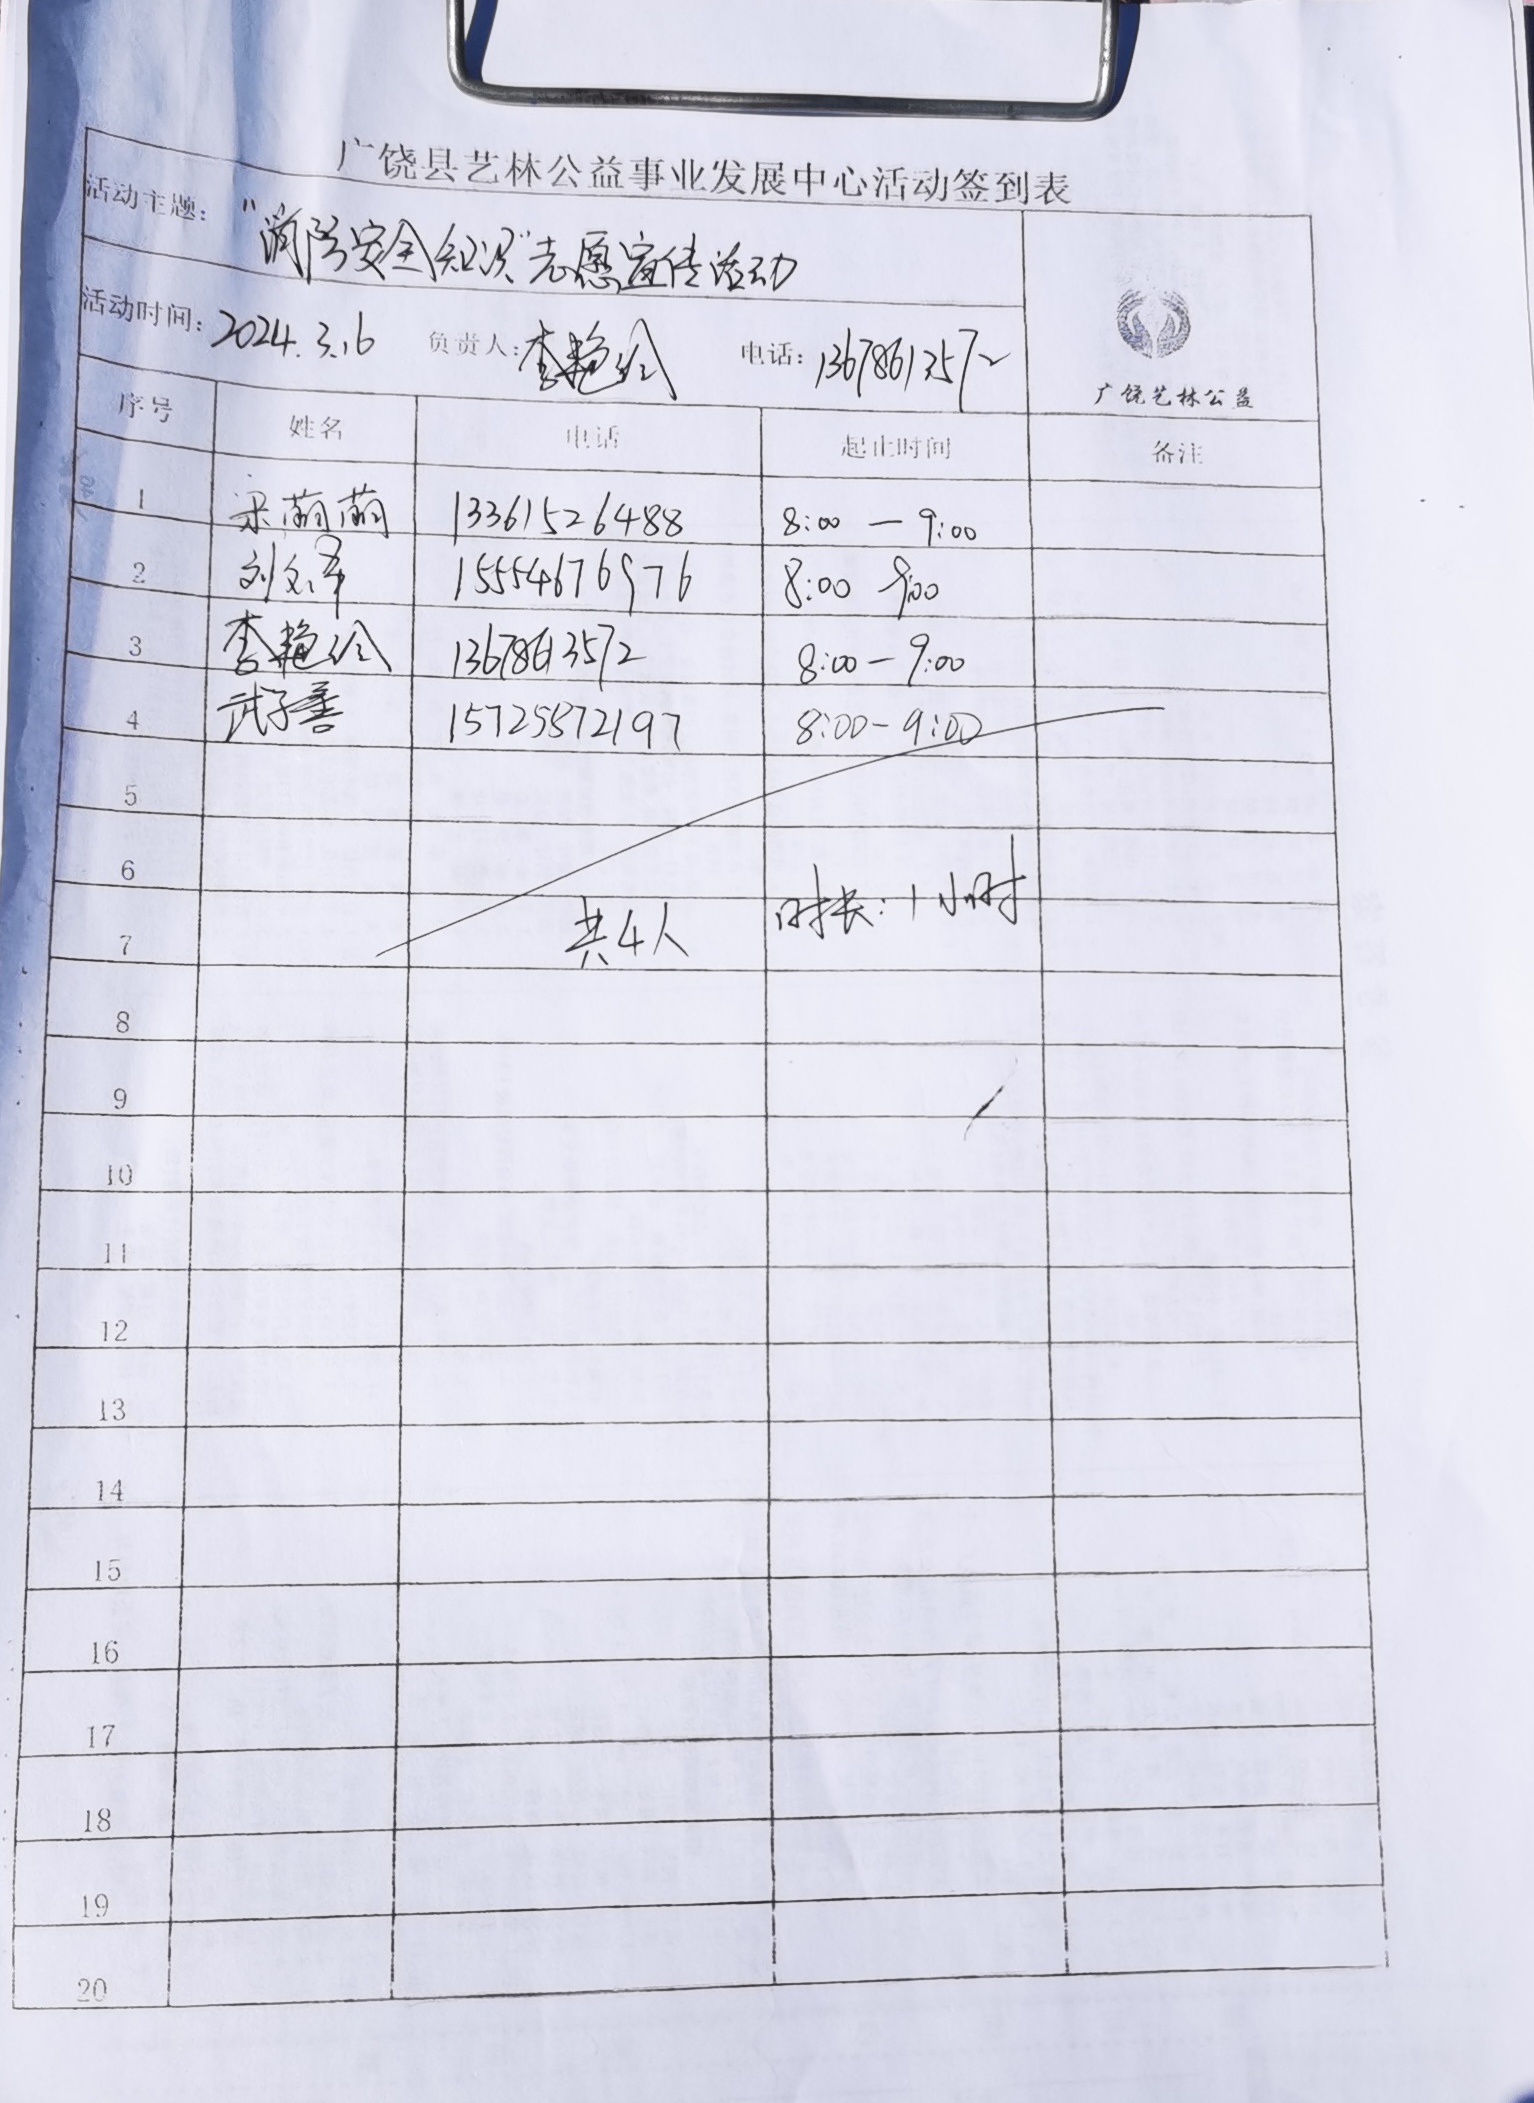 广饶县艺林公益事业发展中心活动签到表
活动主题："消防安全知识"志愿宣传活动
活动时间：2024.3.16 负责人：李艳玲 电话：13678613572
广饶艺林公益
序号 姓名 电话 起止时间 备注
1 宋萌萌 13361526488 8:00 — 9:00
2 刘名泽 15554676976 8:00 9:00
3 李艳玲 13678613572 8:00 — 9:00
4 武子善 15725872197 8:00 - 9:00
5
6
7 共4人 时长：1小时
8
9
10
11
12
13
14
15
16
17
18
19
20